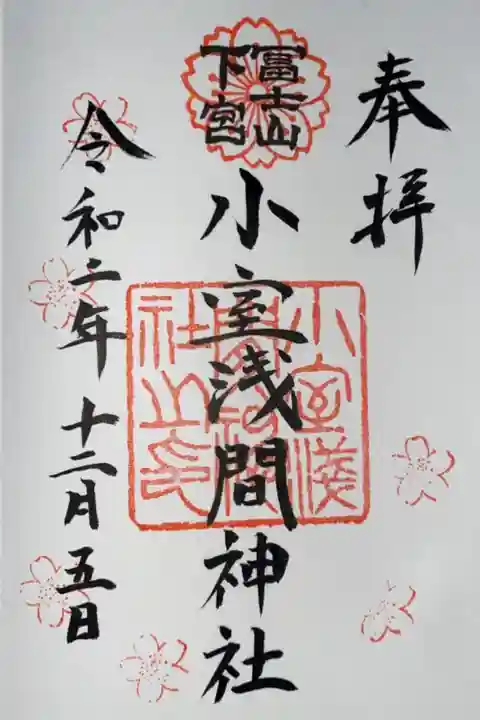 奉拝
冨士山
下宮
小室浅間神社
小室浅
間神
社之印
令和二年十二月五日